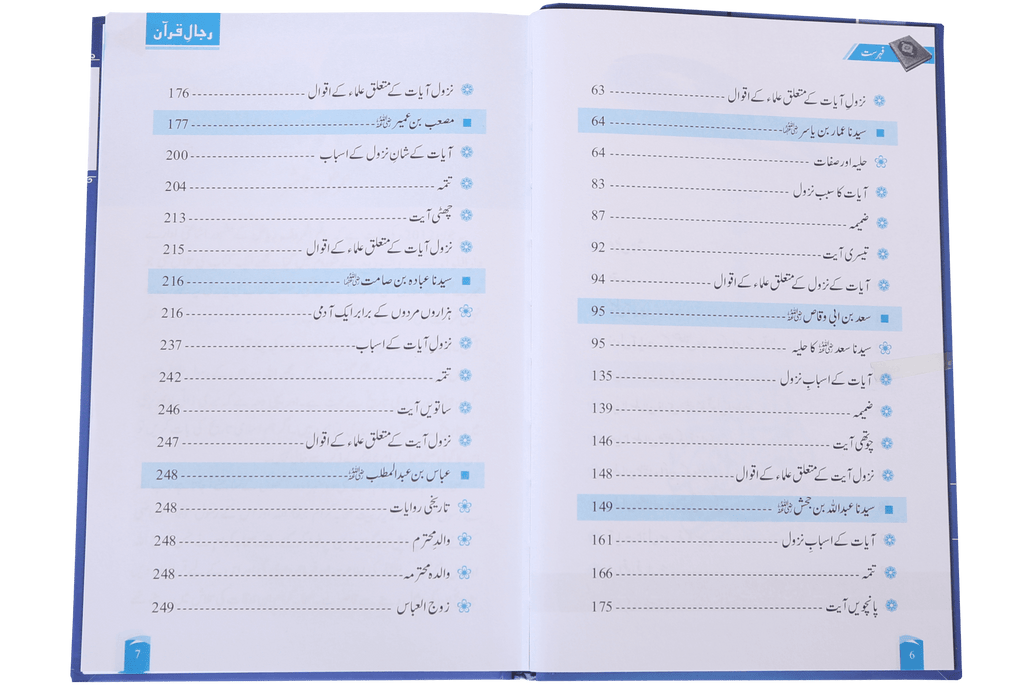 فہرست
نزول آیات کے متعلق علماء کے اقوال ---------------------- 63
سیدنا عمار بن یاسر رضی اللہ عنہ ---------------------- 64
حلیہ اور صفات ---------------------- 64
آیات کا سبب نزول ---------------------- 83
ضمیمہ ---------------------- 87
تیسری آیت ---------------------- 92
آیات کے نزول کے متعلق علماء کے اقوال ---------------------- 94
سعد بن ابی وقاص رضی اللہ عنہ ---------------------- 95
سیدنا سعد رضی اللہ عنہ کا حلیہ ---------------------- 95
آیات کے اسبابِ نزول ---------------------- 135
ضمیمہ ---------------------- 139
چوتھی آیت ---------------------- 146
نزول آیت کے متعلق علماء کے اقوال ---------------------- 148
سیدنا عبداللہ بن جحش رضی اللہ عنہ ---------------------- 149
آیات کے اسبابِ نزول ---------------------- 161
تتمہ ---------------------- 166
پانچویں آیت ---------------------- 175
6
رجال قرآن
نزول آیات کے متعلق علماء کے اقوال ---------------------- 176
مصعب بن عمیر رضی اللہ عنہ ---------------------- 177
آیات کے شانِ نزول کے اسباب ---------------------- 200
تتمہ ---------------------- 204
چھٹی آیت ---------------------- 213
نزول آیات کے متعلق علماء کے اقوال ---------------------- 215
سیدنا عبادہ بن صامت رضی اللہ عنہ ---------------------- 216
ہزاروں مردوں کے برابر ایک آدمی ---------------------- 216
نزولِ آیات کے اسباب ---------------------- 237
تتمہ ---------------------- 242
ساتویں آیت ---------------------- 246
نزول آیت کے متعلق علماء کے اقوال ---------------------- 247
عباس بن عبدالمطلب رضی اللہ عنہ ---------------------- 248
تاریخی روایات ---------------------- 248
والدِ محترم ---------------------- 248
والدہ محترمہ ---------------------- 248
زوج العباس ---------------------- 249
7